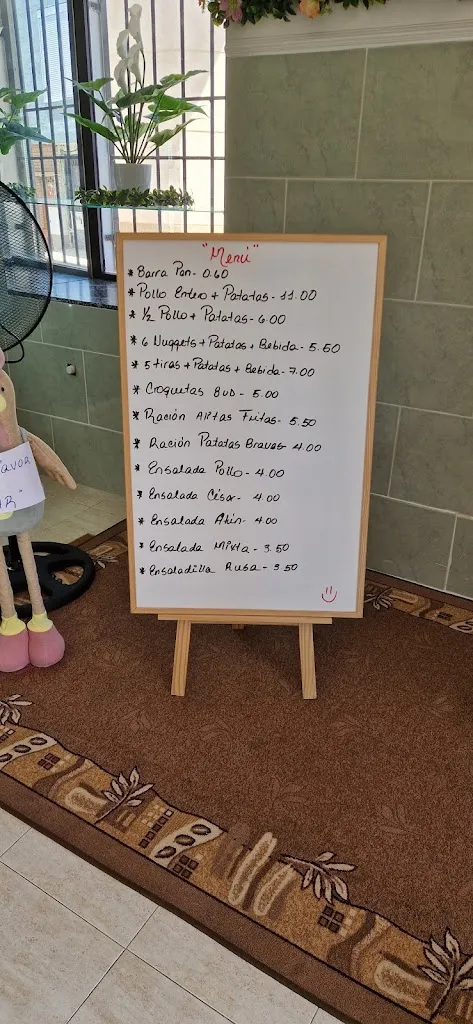 "Menú"
* Barra Pan- 0.60
* Pollo Entero + Patatas- 11.00
* 1/2 Pollo + Patatas- 6.00
* 6 Nuggets + Patatas + Bebida- 5.50
* 5 tiras + Patatas + Bebida- 7.00
* Croquetas 8UD- 5.00
* Ración Alitas Fritas- 5.50
* Ración Patatas Bravas- 4.00
* Ensalada Pollo- 4.00
* Ensalada César- 4.00
* Ensalada Atún- 4.00
* Ensalada Mixta- 3.50
* Ensaladilla Rusa- 3.50